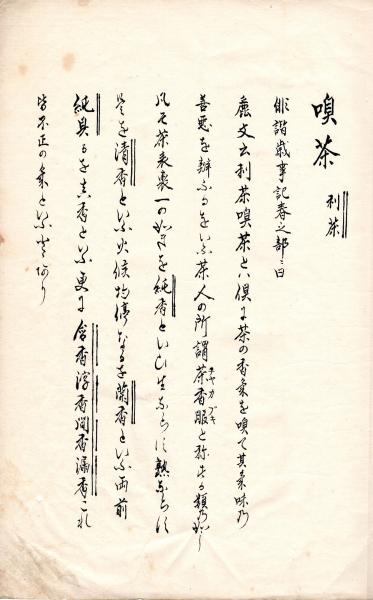 嗅茶 利茶
俳諧歳事記春之部ニ曰
鹿文云利茶嗅茶とハ倶に茶の香気を嗅て其気味乃
善悪を辨ふるをいふ茶人の所謂茶香服と称する類乃如し
チヤカブキ
凡そ茶表裏一の如きを純香といひ生ならす熟ならす
是を清香といふ火候均停なるを蘭香といふ雨前
純具るを真香といふ更に含香浮香間香漏香これ
皆不正の気といふとあり